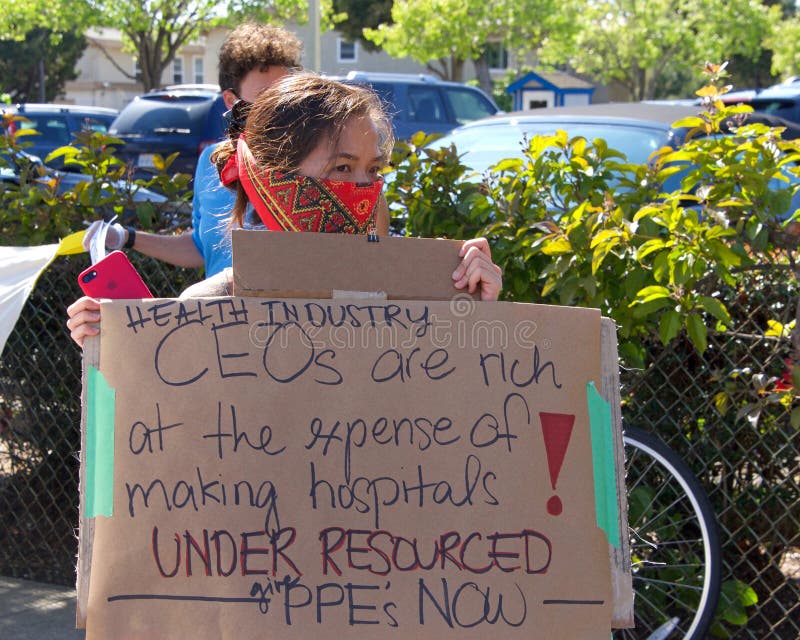 HEALTH INDUSTRY
CEOs are rich
at the expense of
making hospitals !
UNDER RESOURCED
give PPE's NOW
dreamstime